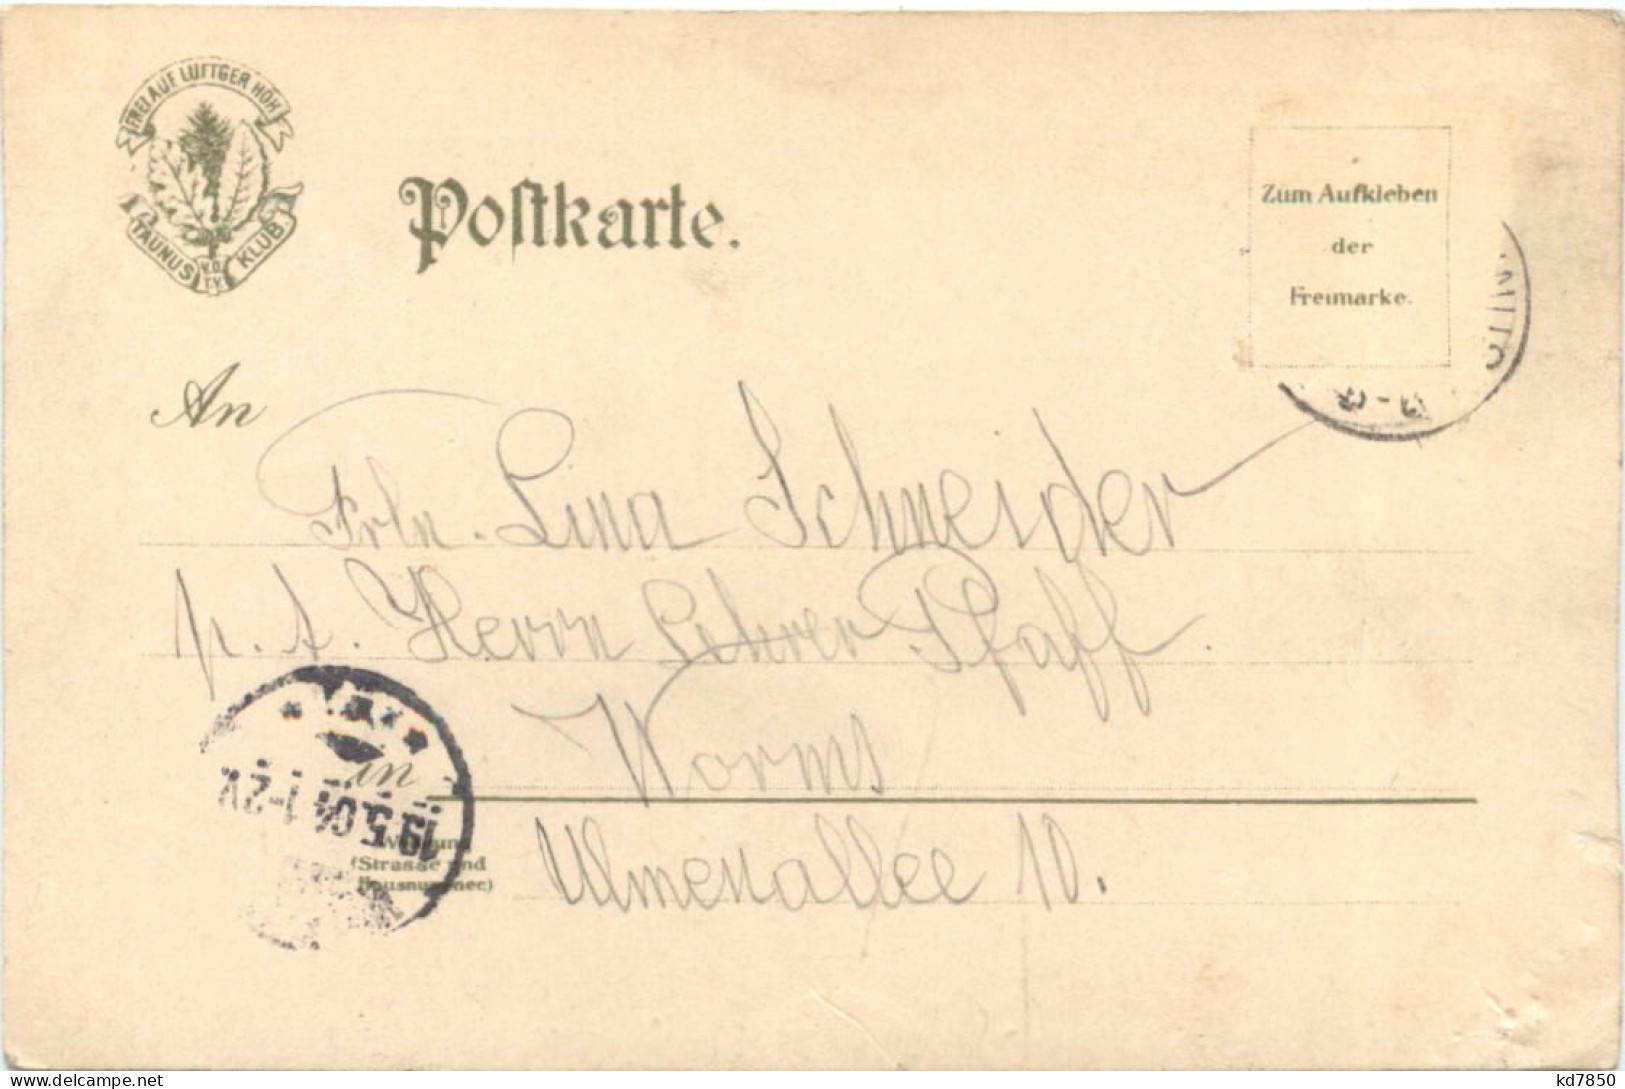 FREI AUF LUFTGER HÖH
TAUNUS KLUB.
V.D.
T.V.
Postkarte.
Zum Aufkleben
der
Freimarke.
An
Frln. Lina Schneider
p. A. Herrn Lehrer Pfaff
Worms
in
19.5.04.1-2V.
Wohnung
(Strasse und
Hausnummer)
Ulmenallee 10.
kd7850